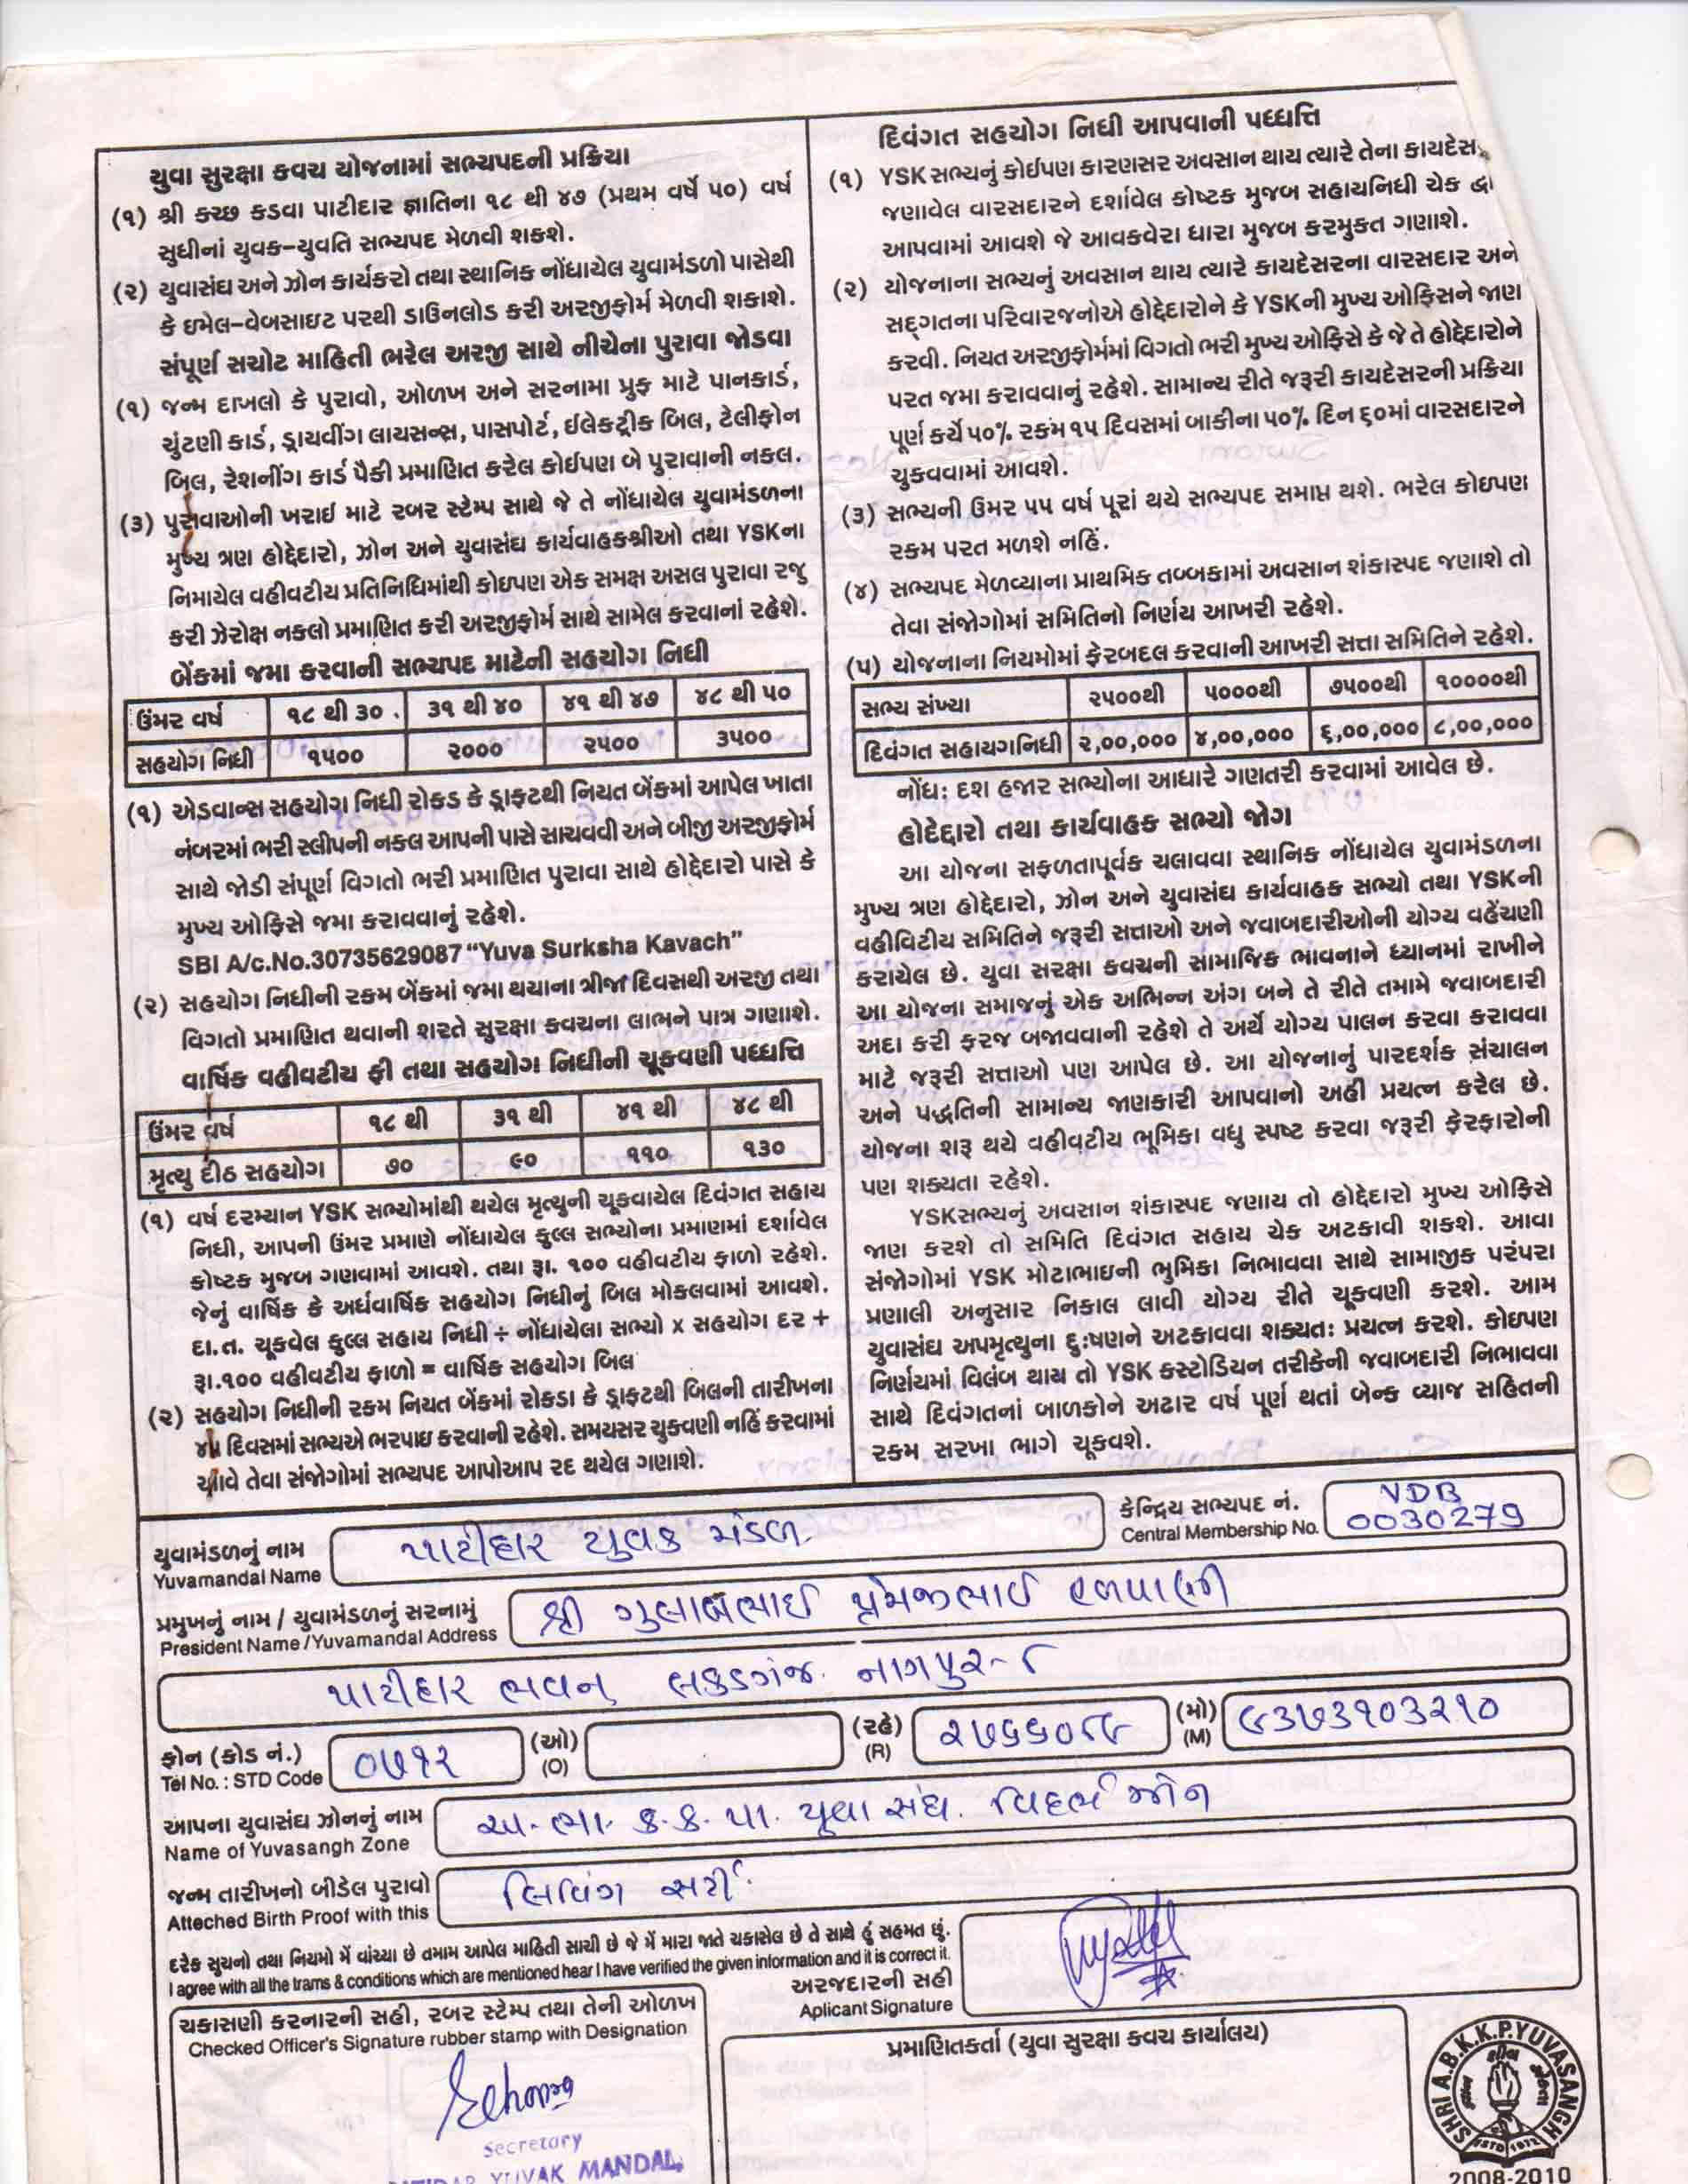 યુવા સુરક્ષા કવચ યોજનામાં સભ્યપદની પ્રક્રિયા
(૧) શ્રી કચ્છ કડવા પાટીદાર જ્ઞાતિના ૧૮ થી ૪૭ (પ્રથમ વર્ષે ૫૦) વર્ષ
સુધીનાં યુવક–યુવતિ સભ્યપદ મેળવી શકશે.
(૨) યુવાસંઘ અને ઝોન કાર્યકરો તથા સ્થાનિક નોંધાયેલ યુવામંડળો પાસેથી
કે ઇમેલ–વેબસાઇટ પરથી ડાઉનલોડ કરી અરજીફોર્મ મેળવી શકાશે.
સંપૂર્ણ સચોટ માહિતી ભરેલ અરજી સાથે નીચેના પુરાવા જોડવા
(૧) જન્મ દાખલો કે પુરાવો, ઓળખ અને સરનામા પ્રુફ માટે પાનકાર્ડ,
ચુંટણી કાર્ડ, ડ્રાયવીંગ લાયસન્સ, પાસપોર્ટ, ઈલેક્ટ્રીક બિલ, ટેલીફોન
બિલ, રેશનીંગ કાર્ડ પૈકી પ્રમાણિત કરેલ કોઈપણ બે પુરાવાની નકલ.
(૩) પુરાવાઓની ખરાઈ માટે રબર સ્ટેમ્પ સાથે જે તે નોંધાયેલ યુવામંડળના
મુખ્ય ત્રણ હોદ્દેદારો, ઝોન અને યુવાસંઘ કાર્યવાહકશ્રીઓ તથા YSKના
નિમાયેલ વહીવટીય પ્રતિનિધિમાંથી કોઇપણ એક સમક્ષ અસલ પુરાવા રજુ
કરી ઝેરોક્ષ નકલો પ્રમાણિત કરી અરજીફોર્મ સાથે સામેલ કરવાનાં રહેશે.
બેંકમાં જમા કરવાની સભ્યપદ માટેની સહયોગ નિધી
ઉંમર વર્ષ ૧૮ થી ૩૦ . ૩૧ થી ૪૦ ૪૧ થી ૪૭ ૪૮ થી ૫૦
સહયોગ નિધી ૧૫૦૦ ૨૦૦૦ ૨૫૦૦ ૩૫૦૦
(૧) એડવાન્સ સહયોગ નિધી રોકડ કે ડ્રાફટથી નિયત બેંકમાં આપેલ ખાતા
નંબરમાં ભરી સ્લીપની નકલ આપની પાસે સાચવવી અને બીજી અરજીફોર્મ
સાથે જોડી સંપૂર્ણ વિગતો ભરી પ્રમાણિત પુરાવા સાથે હોદ્દેદારો પાસે કે
મુખ્ય ઓફિસે જમા કરાવવાનું રહેશે.
SBI A/c.No.30735629087 “Yuva Surksha Kavach”
(૨) સહયોગ નિધીની રકમ બેંકમાં જમા થયાના ત્રીજા દિવસથી અરજી તથા
વિગતો પ્રમાણિત થવાની શરતે સુરક્ષા કવચના લાભને પાત્ર ગણાશે.
વાર્ષિક વહીવટીય ફી તથા સહયોગ નિધીની ચૂકવણી પધ્ધતિ
ઉંમર વર્ષ ૧૮ થી ૩૧ થી ૪૧ થી ૪૮ થી
મૃત્યુ દીઠ સહયોગ ૭૦ ૯૦ ૧૧૦ ૧૩૦
(૧) વર્ષ દરમ્યાન YSK સભ્યોમાંથી થયેલ મૃત્યુની ચૂકવાયેલ દિવંગત સહાય
નિધી, આપની ઉંમર પ્રમાણે નોંધાયેલ કુલ્લ સભ્યોના પ્રમાણમાં દર્શાવેલ
કોષ્ટક મુજબ ગણવામાં આવશે. તથા રૂા. ૧૦૦ વહીવટીય ફાળો રહેશે.
જેનું વાર્ષિક કે અર્ધવાર્ષિક સહયોગ નિધીનું બિલ મોકલવામાં આવશે.
દા.ત. ચૂકવેલ કુલ્લ સહાય નિધી ÷ નોંધાયેલા સભ્યો x સહયોગ દર +
રૂા.૧૦૦ વહીવટીય ફાળો = વાર્ષિક સહયોગ બિલ
(૨) સહયોગ નિધીની રકમ નિયત બેંકમાં રોકડા કે ડ્રાફટથી બિલની તારીખના
દિવસમાં સભ્યએ ભરપાઇ કરવાની રહેશે. સમયસર ચુકવણી નહિં કરવામાં
આવે તેવા સંજોગોમાં સભ્યપદ આપોઆપ રદ થયેલ ગણાશે.
દિવંગત સહયોગ નિધી આપવાની પધ્ધત્તિ
(૧) YSK સભ્યનું કોઈપણ કારણસર અવસાન થાય ત્યારે તેના કાયદેસ
જણાવેલ વારસદારને દર્શાવેલ કોષ્ટક મુજબ સહાયનિધી ચેક દ્વા
આપવામાં આવશે જે આવકવેરા ધારા મુજબ કરમુક્ત ગણાશે.
(૨) યોજનાના સભ્યનું અવસાન થાય ત્યારે કાયદેસરના વારસદાર અને
સદ્ગતના પરિવારજનોએ હોદ્દેદારોને કે YSKની મુખ્ય ઓફિસને જાણ
કરવી. નિયત અરજીફોર્મમાં વિગતો ભરી મુખ્ય ઓફિસે કે જે તે હોદ્દેદારોને
પરત જમા કરાવવાનું રહેશે. સામાન્ય રીતે જરૂરી કાયદેસરની પ્રક્રિયા
પૂર્ણ કર્યે ૫૦% રકમ ૧૫ દિવસમાં બાકીના ૫૦% દિન ૬૦માં વારસદારને
ચુકવવામાં આવશે.
(૩) સભ્યની ઉંમર ૫૫ વર્ષ પૂરાં થયે સભ્યપદ સમાપ્ત થશે. ભરેલ કોઇપણ
રકમ પરત મળશે નહિં.
(૪) સભ્યપદ મેળવ્યાના પ્રાથમિક તબ્બકામાં અવસાન શંકાસ્પદ જણાશે તો
તેવા સંજોગોમાં સમિતિનો નિર્ણય આખરી રહેશે.
(૫) યોજનાના નિયમોમાં ફેરબદલ કરવાની આખરી સત્તા સમિતિને રહેશે.
સભ્ય સંખ્યા ૨૫૦૦થી ૫૦૦૦થી ૭૫૦૦થી ૧૦૦૦૦થી
દિવંગત સહાયગનિધી ૨,૦૦,૦૦૦ ૪,૦૦,૦૦૦ ૬,૦૦,૦૦૦ ૮,૦૦,૦૦૦
નોંધઃ દશ હજાર સભ્યોના આધારે ગણતરી કરવામાં આવેલ છે.
હોદેદ્દારો તથા કાર્યવાહક સભ્યો જોગ
આ યોજના સફળતાપૂર્વક ચલાવવા સ્થાનિક નોંધાયેલ યુવામંડળના
મુખ્ય ત્રણ હોદ્દેદારો, ઝોન અને યુવાસંઘ કાર્યવાહક સભ્યો તથા YSKની
વહીવિટીય સમિતિને જરૂરી સત્તાઓ અને જવાબદારીઓની યોગ્ય વહેંચણી
કરાયેલ છે. યુવા સરક્ષા કવચની સામાજિક ભાવનાને ધ્યાનમાં રાખીને
આ યોજના સમાજનું એક અભિન્ન અંગ બને તે રીતે તમામે જવાબદારી
અદા કરી ફરજ બજાવવાની રહેશે તે અર્થે યોગ્ય પાલન કરવા કરાવવા
માટે જરૂરી સત્તાઓ પણ આપેલ છે. આ યોજનાનું પારદર્શક સંચાલન
અને પદ્ધતિની સામાન્ય જાણકારી આપવાનો અહી પ્રયત્ન કરેલ છે.
યોજના શરૂ થયે વહીવટીય ભૂમિકા વધુ સ્પષ્ટ કરવા જરૂરી ફેરફારોની
પણ શક્યતા રહેશે.
YSKસભ્યનું અવસાન શંકાસ્પદ જણાય તો હોદ્દેદારો મુખ્ય ઓફિસે
જાણ કરશે તો સમિતિ દિવંગત સહાય ચેક અટકાવી શકશે. આવા
સંજોગોમાં YSK મોટાભાઇની ભુમિકા નિભાવવા સાથે સામાજીક પરંપરા
પ્રણાલી અનુસાર નિકાલ લાવી યોગ્ય રીતે ચૂકવણી કરશે. આમ
યુવાસંઘ અપમૃત્યુના દુઃષણને અટકાવવા શક્યતઃ પ્રયત્ન કરશે. કોઇપણ
નિર્ણયમાં વિલંબ થાય તો YSK કસ્ટોડિયન તરીકેની જવાબદારી નિભાવવા
સાથે દિવંગતનાં બાળકોને અઢાર વર્ષ પૂર્ણ થતાં બેન્ક વ્યાજ સહિતની
રકમ સરખા ભાગે ચૂકવશે.
યુવામંડળનું નામ પાટીદાર યુવક મંડળ કેન્દ્રિય સભ્યપદ નં. VDB
Yuvamandal Name Central Membership No. 0030279
પ્રમુખનું નામ / યુવામંડળનું સરનામું શ્રી ગુલાબભાઈ પ્રેમજીભાઈ
President Name / Yuvamandal Address
પાટીદાર ભવન લકડગંજ. નાગપુર-૮
ફોન (કોડ નં.) ૦૭૧૨ (ઓ) (રહે) ૨૭૬૬૦૯૮ (મો) ૯૩૭૩૧૦૩૨૧૦
Tel No. : STD Code (O) (R) (M)
આપના યુવાસંઘ ઝોનનું નામ અ. ભા. ક. ક. પા. યુવા સંઘ. વિદર્ભ ઝોન
Name of Yuvasangh Zone
જન્મ તારીખનો બીડેલ પુરાવો લિવિંગ સર્ટી.
Atteched Birth Proof with this
દરેક સુચનો તથા નિયમો મેં વાંચ્યા છે તમામ આપેલ માહિતી સાચી છે જે મેં મારા જાતે ચકાસેલ છે તે સાથે હું સહમત છું.
I agree with all the trams & conditions which are mentioned hear I have verified the given information and it is correct it.
અરજદારની સહી
Aplicant Signature
ચકાસણી કરનારની સહી, રબર સ્ટેમ્પ તથા તેની ઓળખ
Checked Officer's Signature rubber stamp with Designation
Secretary
YUVAK MANDAL
પ્રમાણિતકર્તા (યુવા સુરક્ષા કવચ કાર્યાલય)
SHRI A.B.K.K.P.YUVASANGH
ESTD 1972
2008-2010